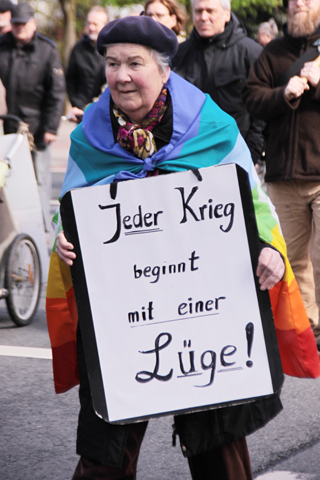 Jeder Krieg
beginnt
mit einer
Lüge!